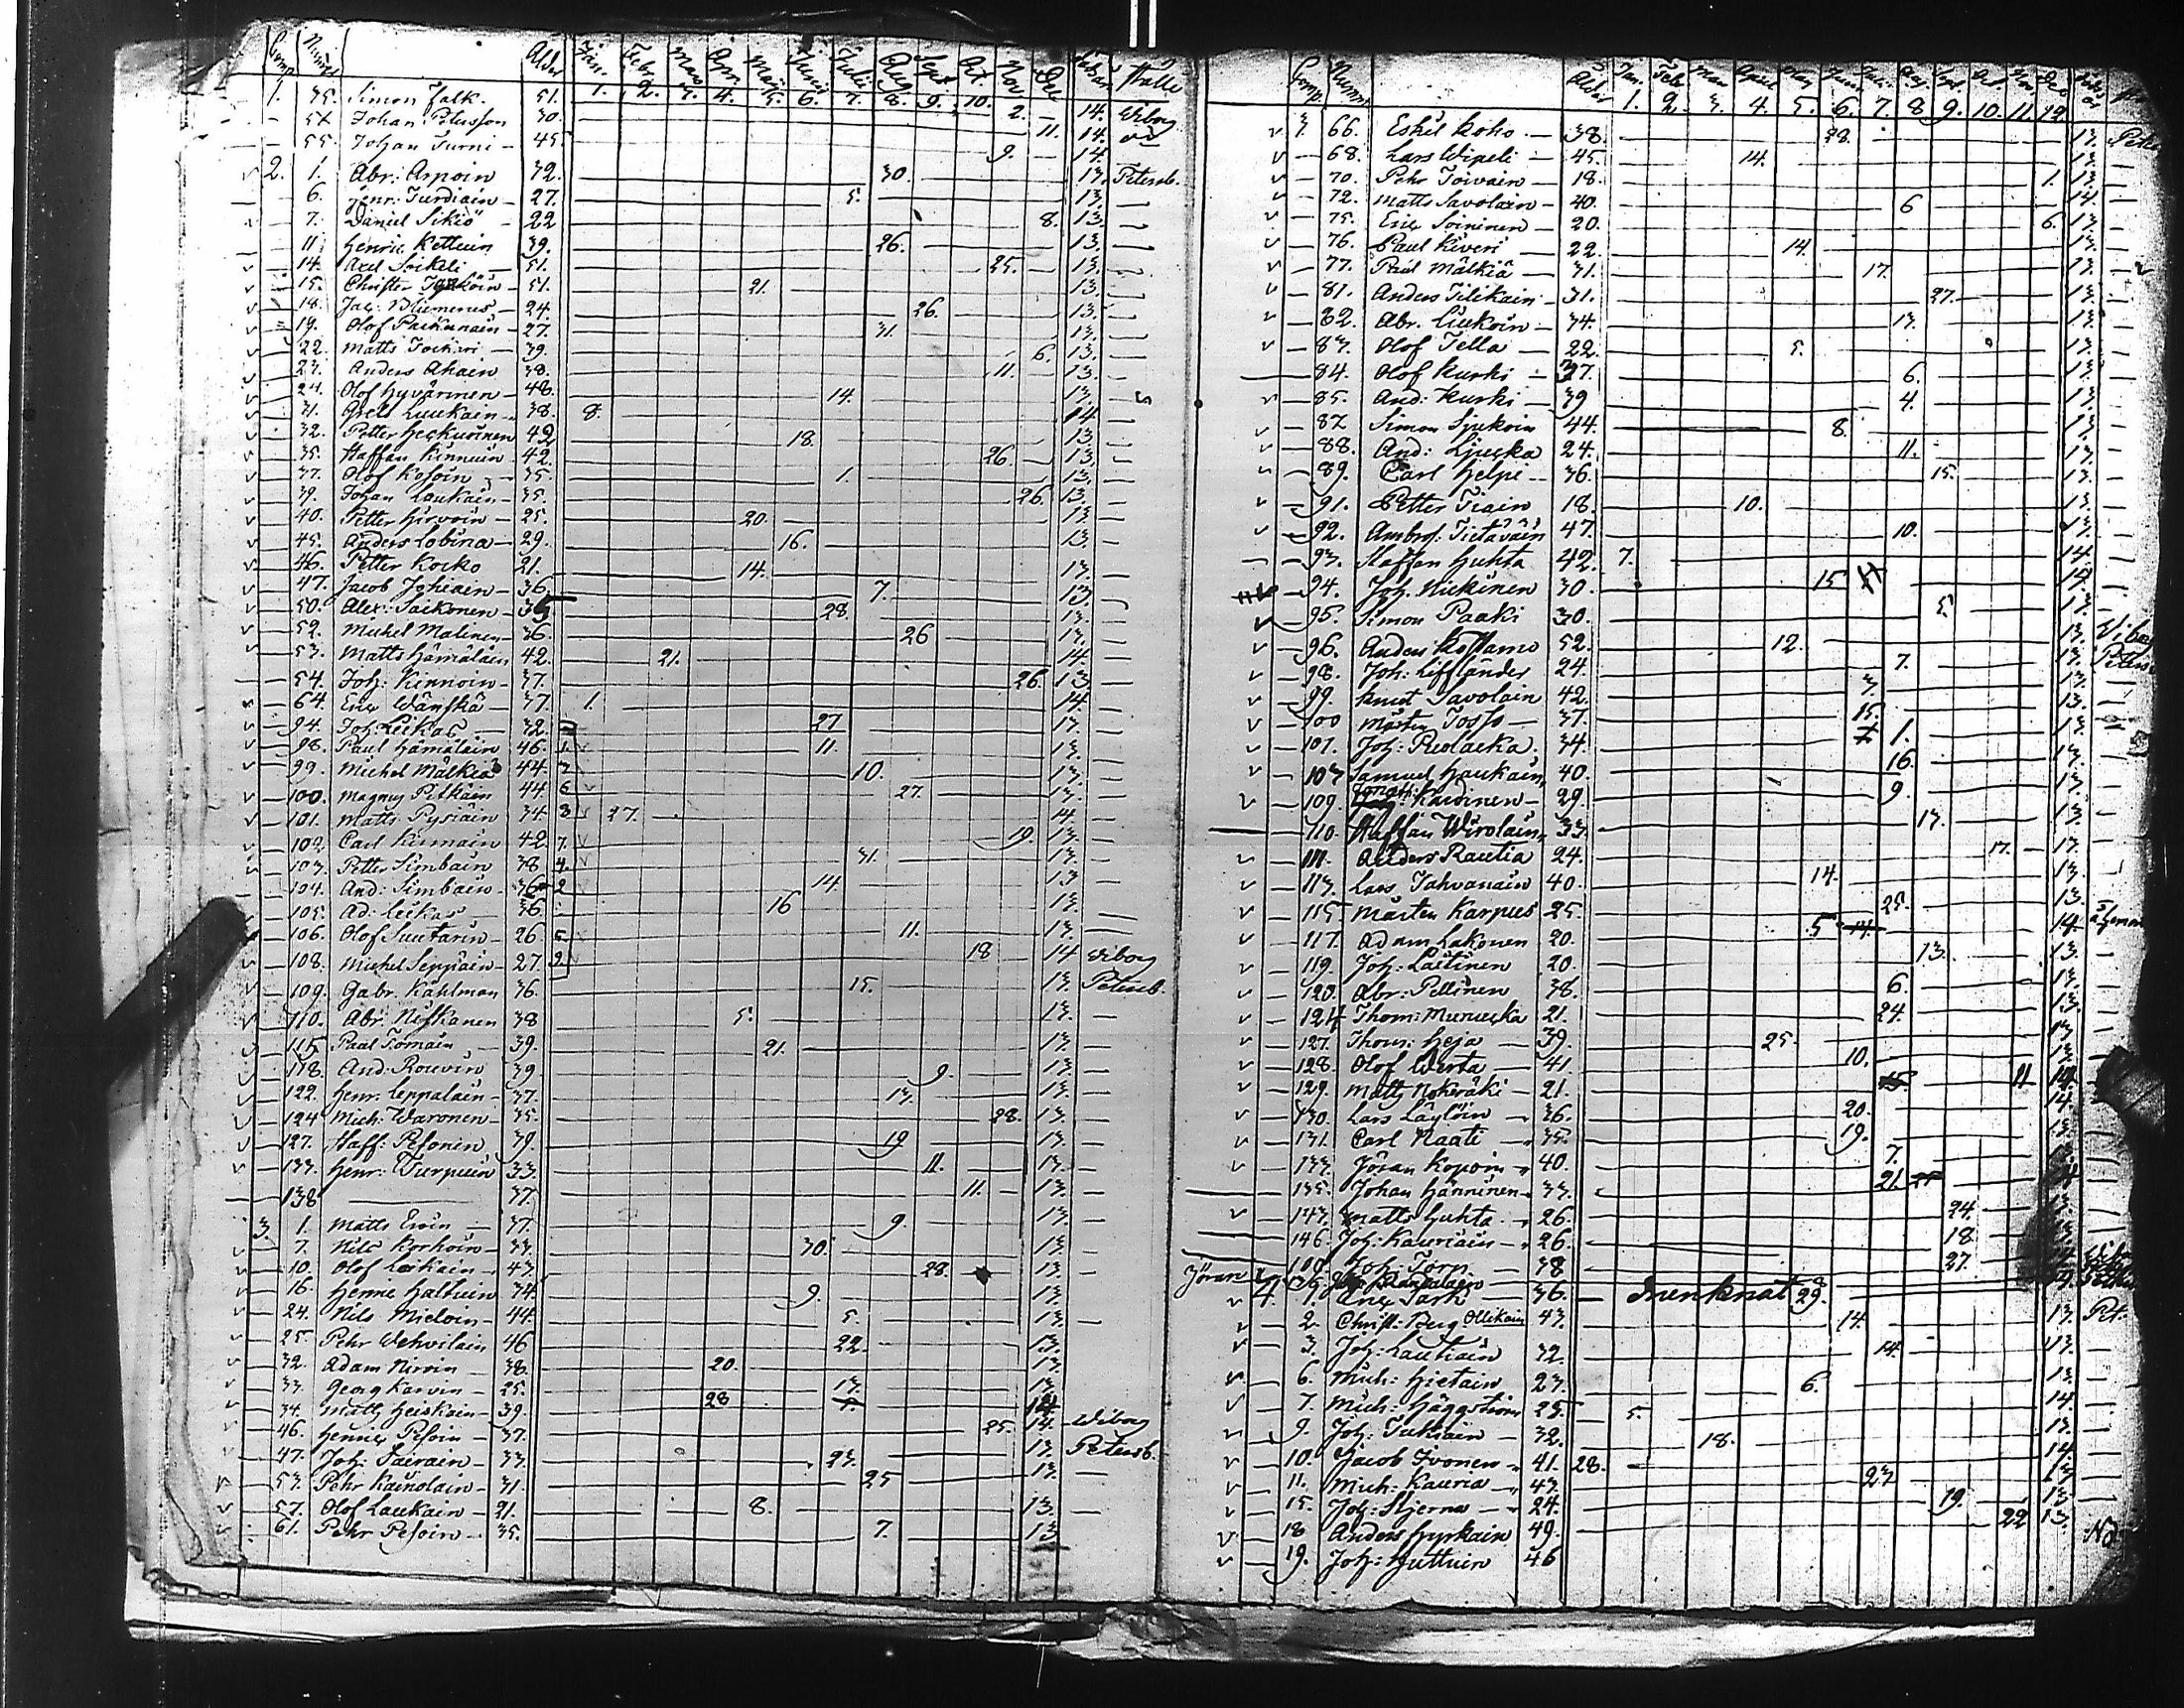 Comp. Numr. Ålder Jan. Febr. Mars Apr. Maj Junii Julii Aug. Sept. Oct. Nov Dec Ställe
1. 2. 3. 4. 5. 6. 7. 8. 9. 10.
1. 35. Simon Falk. 51. 2. — 14. Wiborg
— 52 Johan Petersson 30. 11. 14.
— 55. Johan Turni — 45. 9. — 14.
2. 1. Abr: Arpoin 32. 30. 13. Petersb.
6. Henr: Turdiain — 27. 5. 13. —
7. Daniel Sikiö — 22 8. 13. —
11 Henric Kettuin 39. 26. 13. —
14. Axel Soikeli — 51. 25. — 13. —
15. Christer — 51. 21. 13. —
18. Jac: Blumerus — 24. 26. 13. —
19. Olof Paikanain — 27. 31. 13. —
22. Matts — 39. 6. 13. —
23. Anders Ahain 38. 11. 13. —
24. Olof Hyvärinen — 48. 14. 13. —
31. Axel Luukain — 38. 8. 14. —
32. Petter Heckuoinen 42 18. 13. —
35. Staffan Kinnuin — 42. 26. — 13. —
37. Olof Kosoin — 35. 1. 13. —
39. Johan Laukain — 35. 26. 13. —
40. Petter Hirvoin — 25. 20. 13. —
45. Anders Lobina — 29. 16. 13. —
46. Petter Kocko 21. 14. 13. —
47. Jacob — 36 7. 13. —
50. Alex: Saikonen — 35 28. 13. —
52. Michel Malinen — 36. 26 13. —
53. Matts Hämäläin 42. 21. 14. —
54. Joh: Kinnoin — 37. 26. 13 —
64. Eric Wänskä — 37. 1. 14. —
94. Joh: Leikas — 32. 27 13. —
98. Paul Hämäläin 46. 1. 11. 13. —
99. Michel Mälkiä 44. 10. 13. —
100. Magnus Pitkäin 44 6 27. 13. —
101. Matts Pysiäin 34 3 27. 14. —
102. Carl Kinnain 42. 7. 19. 13. —
103. Petter Simbain 38 4. 31. 13. —
104. And: Simbain — 36 2 14. 13 —
105. Ad: Leikas — 36. 16 13. —
106. Olof Suutarin — 26 5. 11. 13. —
108. Michel Seppäin — 27. 2. 18 14 Wiborg
109. Gabr. Kahlman 36. 15. 13. Petersb.
110. Abr. Niskanen 38 5. 13. —
115 Paul Tomain — 39. 21. 13. —
118. And: Rouvin 39. 9. 13. —
122. Henr: Leppäläin — 37. 13. 13. —
124 Mich: Waronen — 35. 28. 13. —
127. Staff: Pesonen — 39. 19 13. —
133. Henr: Turpuin 33. 11. 13. —
138 — 37. 11. — 13. —
3. 1. Matts Ewin — 37. 9. 13. —
7. Nils Korhoin — 33. 30. 13. —
10. Olof Leikain — 43. 28. 13. —
16. Henric Haltuin 34. 9. 13. —
24. Nils Mieloin — 44. 5. 13. —
25. Pehr Wehvilain 46 22. 13. —
32. Adam Nirvin — 38. 20. 13. —
33. Georg Karvin — 25. 13. 13. —
34. Matts Heiskain — 39. 28 14. —
46. Henric Pesoin — 37. 25. 14. Wiborg
47. Joh: Taivain — 33. 23. 13. Petersb.
53. Pehr Kainolain — 31. 25 13. —
57. Olof Laukain — 21. 8. 13. —
61. Pehr Pesoin — 35. 7. 13 —
Comp. Numr. Ålder Jan. Febr. Mar. April Maj Junii Juli. Aug. Sept. Oct. Nov. Dec
1. 2. 3. 4. 5. 6. 7. 8. 9. 10. 11. 12.
3. 66. Eskil Koho — 38. 28. 13.
68. Lars Wipeli — 45. 14. 13. —
70. Pehr Toivain — 18. 1. 13. —
72. Matts Savolain — 40. 6 14. —
75. Eric Soininen — 20. 6. 13. —
76. Paul Kiveri 22. 14. 13. —
77. Paul Mälkiä — 31. 17. 13. —
81. Anders Tilikain — 31. 27. 13. —
82. Abr. Liukoin — 34. 13. 13. —
83. Olof Tella — 22. 5. 13. —
84. Olof Kurki — 37. 6. 13. —
85. And: Kurki — 39 4. 13. —
87 Simon Sjukoin 44. 8. 13. —
88. And: Ljucka 24. 11. 13. —
89. Carl Helpi — 36. 15. 13. —
91. Petter Tiain 18. 10. 13. —
92. Ambros. Tietäväin 47. 10. 13. —
93. Staffan Huhta 42. 7. 14. —
94. Joh. Mickinen 30. 15 14. —
95. Simon Paaki 30. 5. 13. —
96. Anders 52. 12. 13. Wiborg
98. Joh: Liffländer 24. 7. 13. Petersb
99. Knut Savolain 42. 3. 13. —
100 Mårten — 37. 15. 13. —
101. Joh: 34. 1. 13. —
107 Samuel Haukain, 40. 16. 13. —
109. Kardinen — 29. 9. 13. —
110. Staffan Wirolain, 33. 13. 13. —
111. Anders Rautia 24. 17. 13. —
113. Lars Tahvanain 40. 14. 13. —
115. Mårten Karpus 25. 25. 13. —
117. Adam Lakonen 20. 5 14. 14.
119. Joh: Laitinen 20. 13. 13. —
120. Abr: Pellinen 38. 6. 13. —
124 Thom: Murucka 21. 24. 13. —
127. Thom: Heja — 39. 25. 13. —
128. Olof Werta — 41. 10. 13. —
129. Matts Nokeräki — 21. 15. 11 14. —
130. Lars — 36. 20. 14. —
131. Carl Naati — 35. 19. 13. —
133. Jöran Kopoin — 40. 7. 13.
135. Johan Hänninen — 33. 21. 25 14
143. Matts Huhta — 26. 24. 13.
146. Joh: Kauriain — 26. 18. 13.
Joh: Torp — 38 27. 14
Jöran 36.
4. 1. — 36. 29. 14.
2. Christ: Berg Ollikain 43. 14. 13. Pet.
3. Joh: Lautiain 32. 14. 13. —
6. Mich: Hietain 23. 6. 13. —
7. Mich: Häggström 25. 5. 14 —
9. Joh: Tukiain — 32. 18. 13. —
10. Jacob Ivonen — 41. 28. 14. —
11. Mich: Kauria — 43. 23 13 —
15. Joh: Stjerna — 24. 19. 13 —
18 Anders Hyrkain 49. 22 13.
19. Joh: Huttuin 46